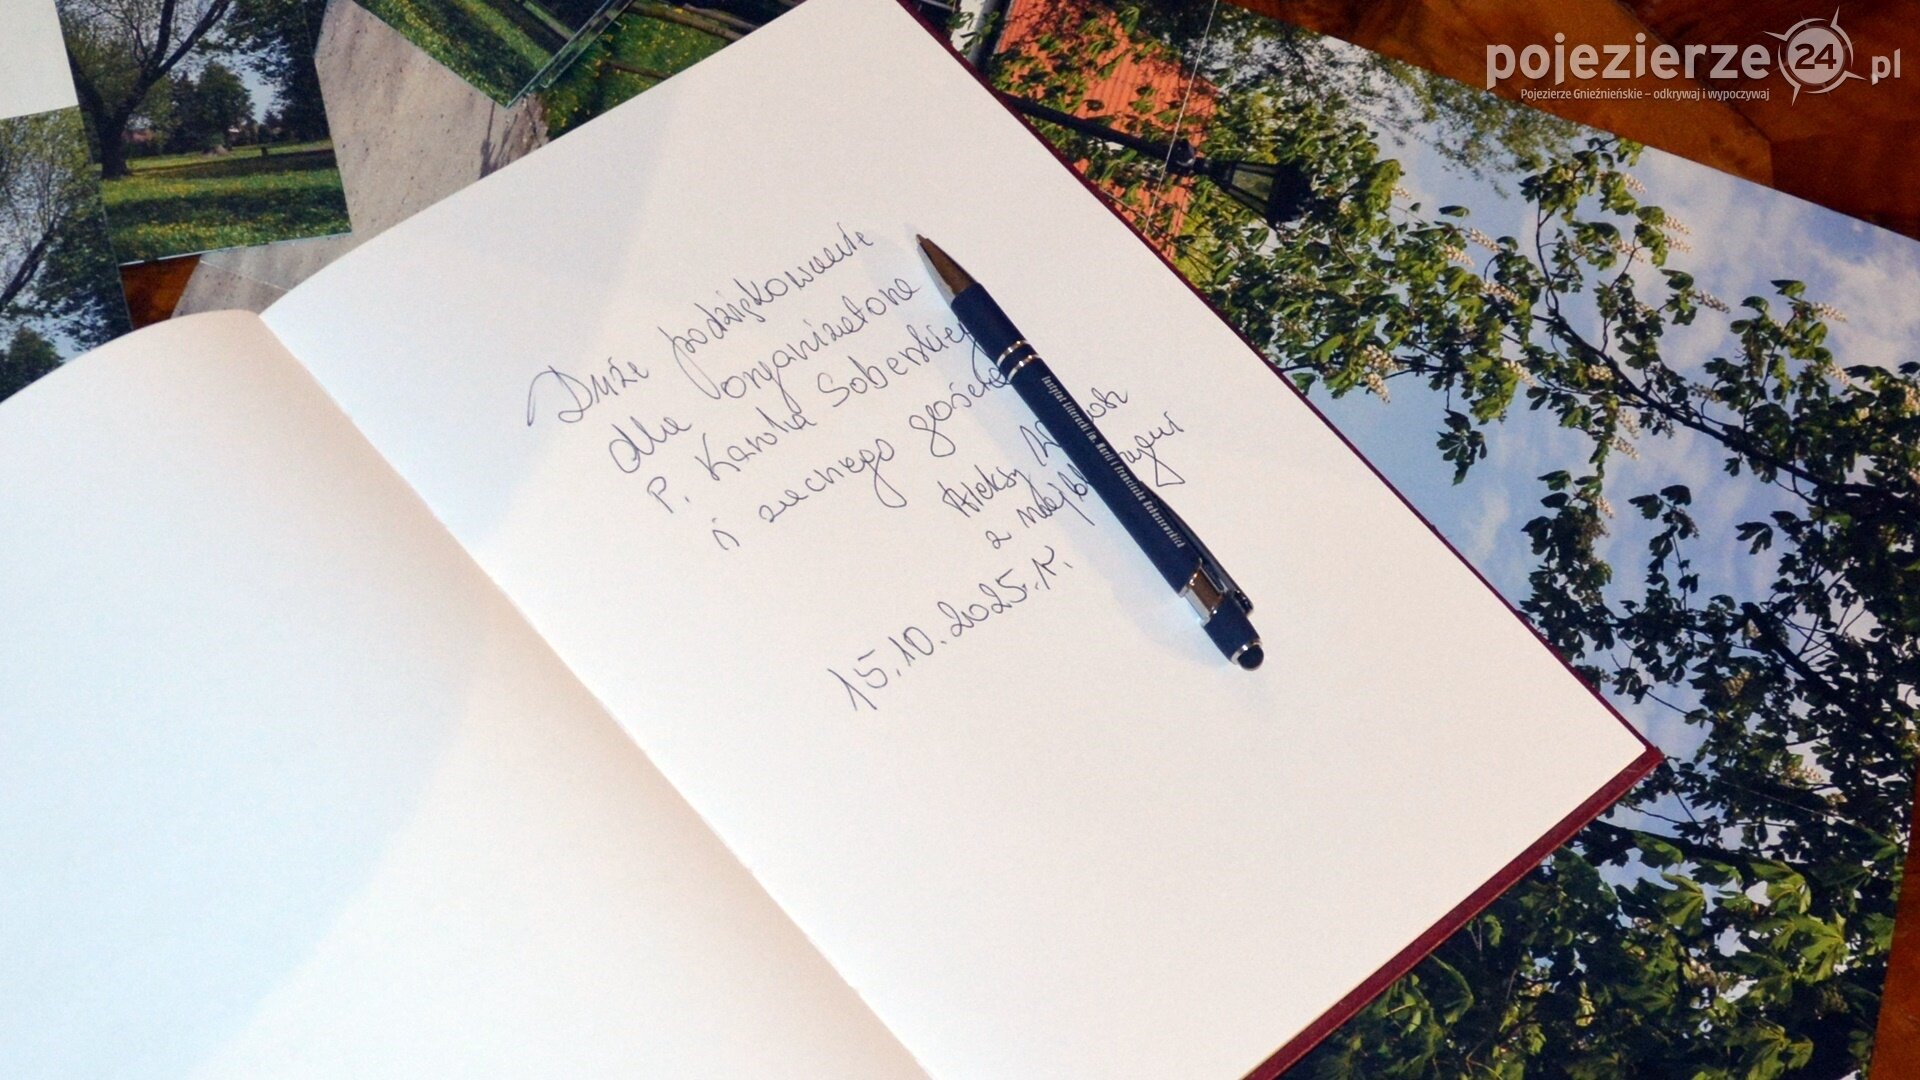 Duże podziękowanie
dla organizatora
P. Karola Soberskiego
i zacnego gościa
Aleksy
z najbliższymi
15.10.2025.r.
Instytut Literacki im. Marii i Franciszka
pojezierze24.pl
Pojezierze Gnieźnieńskie – odkrywaj i wypoczywaj